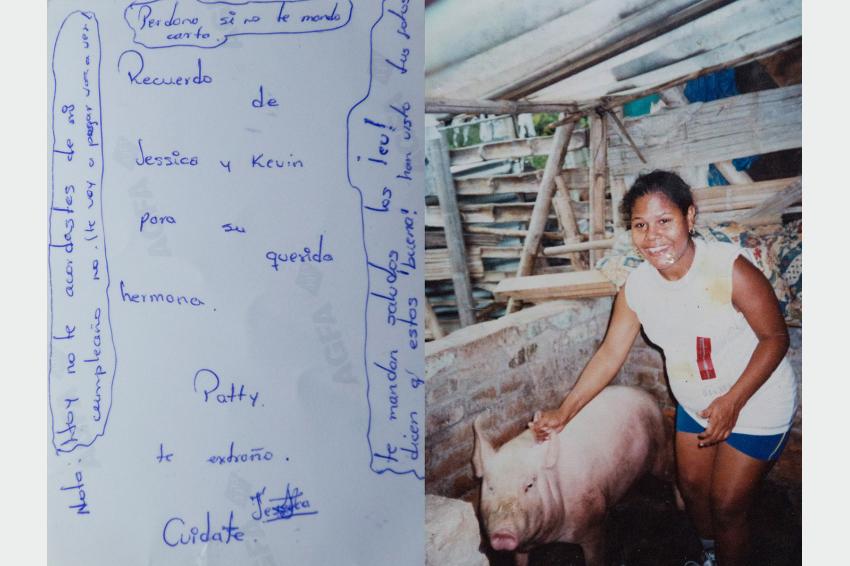 Perdona si no te mando
carta.
Recuerdo
de
Jessica y Kevin
para su
querida
hermana.
Patty.
te extraño.
Jessica
Cuidate.
Nota: Hoy no te acordastes de mi
cumpleaño no. (te voy a pegar vas a ver!
te mandan saludos los leu!
dicen q' estas buena! han visto tus fotos
AGFA
AGFA
AGFA